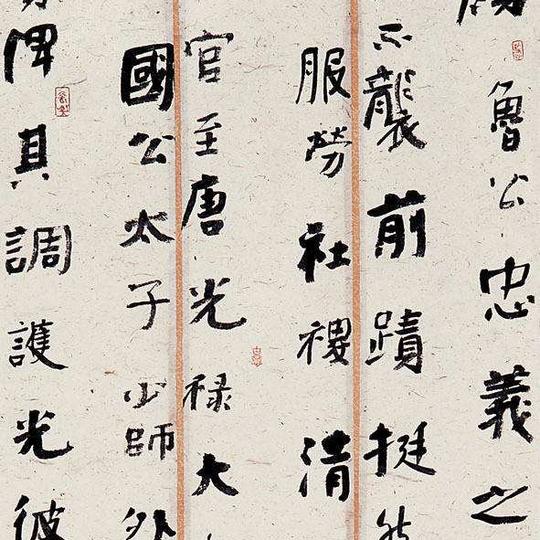 魯公忠義之
不襲前蹟挺然
服勞社稷清
官至唐光禄大
國公太子少師外
俾其調護光彼